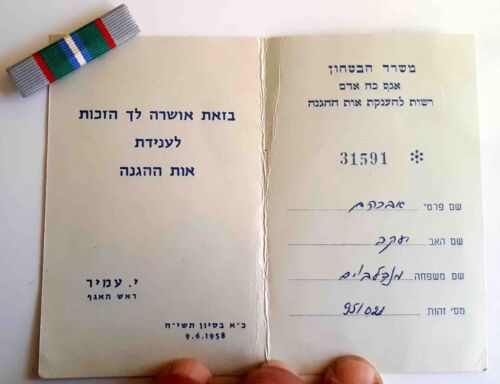 משרד הבטחון
אגף כח אדם
רשות להענקת אות ההגנה
31591 *
שם פרטי אברהם
שם האב יעקב
שם משפחה מנדלבוים
מס' זהות 951021
בזאת אושרה לך הזכות
לענידת
אות ההגנה
י. עמיר
ראש האגף
כ"א בסיון תשי"ח
9.6.1958